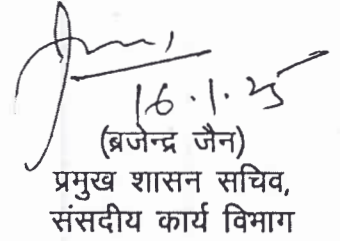 16.1.25
(ब्रजेन्द्र जैन)
प्रमुख शासन सचिव,
संसदीय कार्य विभाग